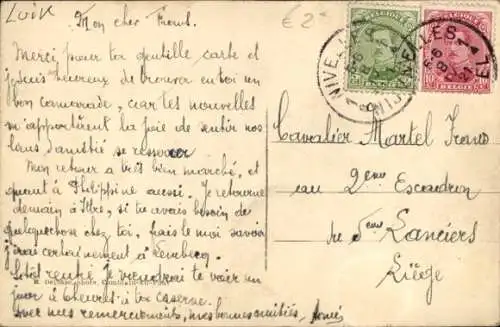 Luik
€ 2-
Mon cher Franz.
Merci pour ta gentille carte et
je suis heureux de trouver en toi un
bon camarade, car tes nouvelles
m'apportent la joie de sentir nos
liens d'amitié se resserrer
Mon retour a très bien marché, et
quant à Philippine aussi. Je retourne
demain à Ittre, si tu avais besoin de
quelque chose chez toi, fais le moi savoir
j'irai certainement à Lembecq.
Sitôt rentré je viendrai te voir un
jour à cheures à ta caserne.
Avec mes remerciements, mes bonnes amitiés,
Cavalier Martel Franz
au 2eme Escadron
du 5me Lanciers
Liège
BELGIQUE
BELGIQUE
10
10
NIVELLES
NIJVEL